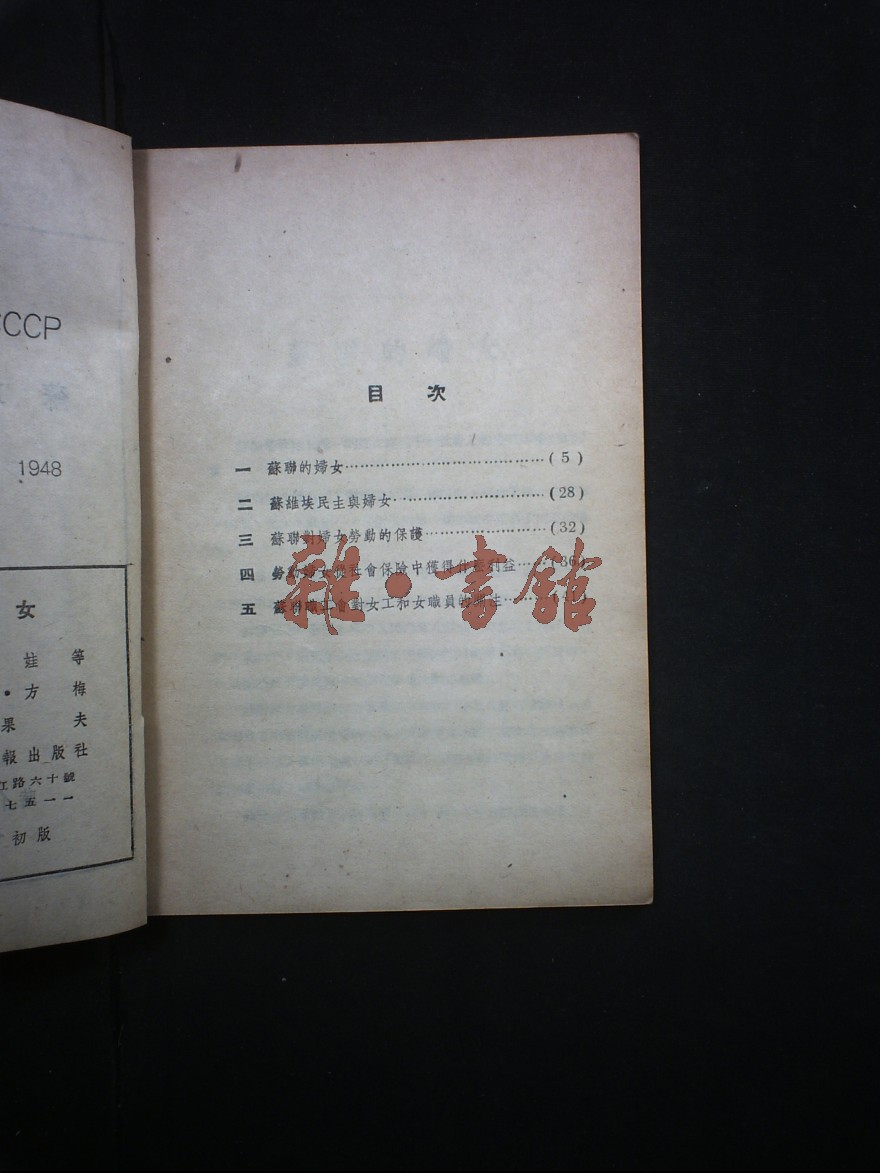 СССР
1948
女
娃 等
·方 梅
果 夫
報出版社
江路六十號
七五一一
初版
目 次
一 蘇聯的婦女……………………………(5)
二 蘇維埃民主與婦女……………………(28)
三 蘇聯對婦女勞動的保護………………(32)
四 勞動婦女從社會保險中獲得什麼利益……(36)
五 蘇聯職工會對女工和女職員的關注………
雜·書館